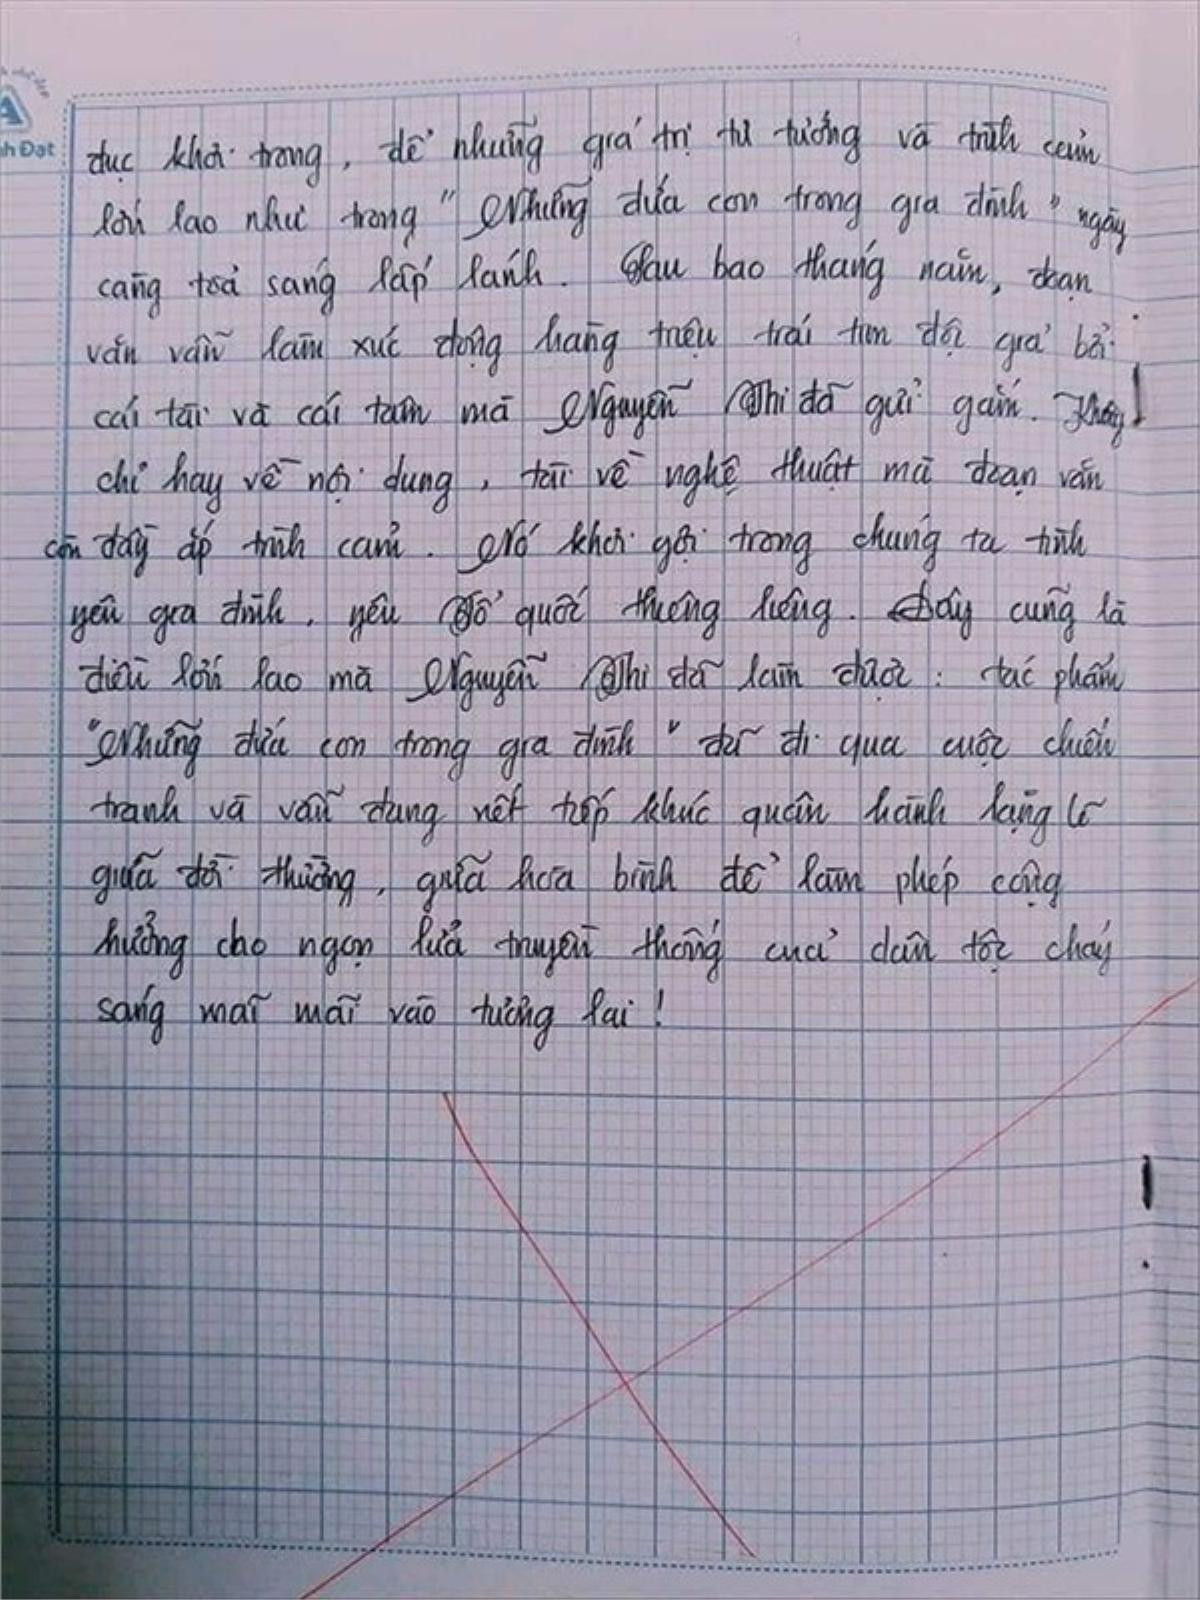 A
nh Đạt
đục khơi trong, để những giá trị tư tưởng và tình cảm
lớn lao như trong "Những đứa con trong gia đình" ngày
càng toả sáng lấp lánh. Sau bao tháng năm, đoạn
văn vẫn làm xúc động hàng triệu trái tim độc giả bởi
cái tài và cái tâm mà Nguyễn Thi đã gửi gắm. Không
chỉ hay về nội dung, tài về nghệ thuật mà đoạn văn
còn đầy ắp tình cảm. Nó khơi gợi trong chúng ta tình
yêu gia đình, yêu Tổ quốc thương liêng. Đây cũng là
điều lớn lao mà Nguyễn Thi đã làm được: tác phẩm
"Những đứa con trong gia đình" đã đi qua cuộc chiến
tranh và vẫn đang nết tiếp khúc quân hành lặng lẽ
giữa đời thường, giữa hoà bình để làm phép cộng
hưởng cho ngọn lửa truyền thống của dân tộc cháy
sáng mãi mãi vào tương lai!